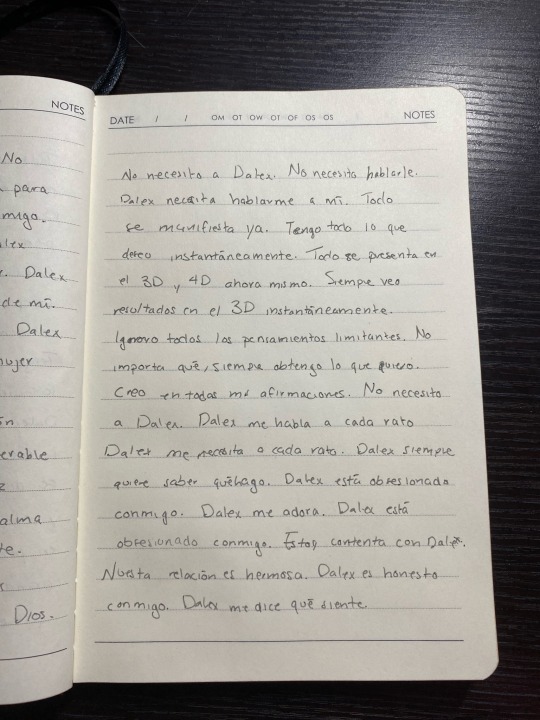 NOTES
No
para
migo.
lex
Dalex
de mí.
Dalex
mujer
ón
erable
z
alma
te.
Dios.
DATE / / OM OT OW OT OF OS OS NOTES
No necesito a Dalex. No necesito hablarle.
Dalex necesita hablarme a mí. Todo
se manifiesta ya. Tengo todo lo que
deseo instantáneamente. Todo se presenta en
el 3D y 4D ahora mismo. Siempre veo
resultados en el 3D instantáneamente.
Ignoro todos los pensamientos limitantes. No
importa qué, siempre obtengo lo que quiero.
Creo en todas mis afirmaciones. No necesito
a Dalex. Dalex me habla a cada rato
Dalex me necesita a cada rato. Dalex siempre
quiere saber qué hago. Dalex está obsesionado
conmigo. Dalex me adora. Dalex está
obsesionado conmigo. Estoy contenta con Dalex.
Nuesta relación es hermosa. Dalex es honesto
conmigo. Dalex me dice qué siente.